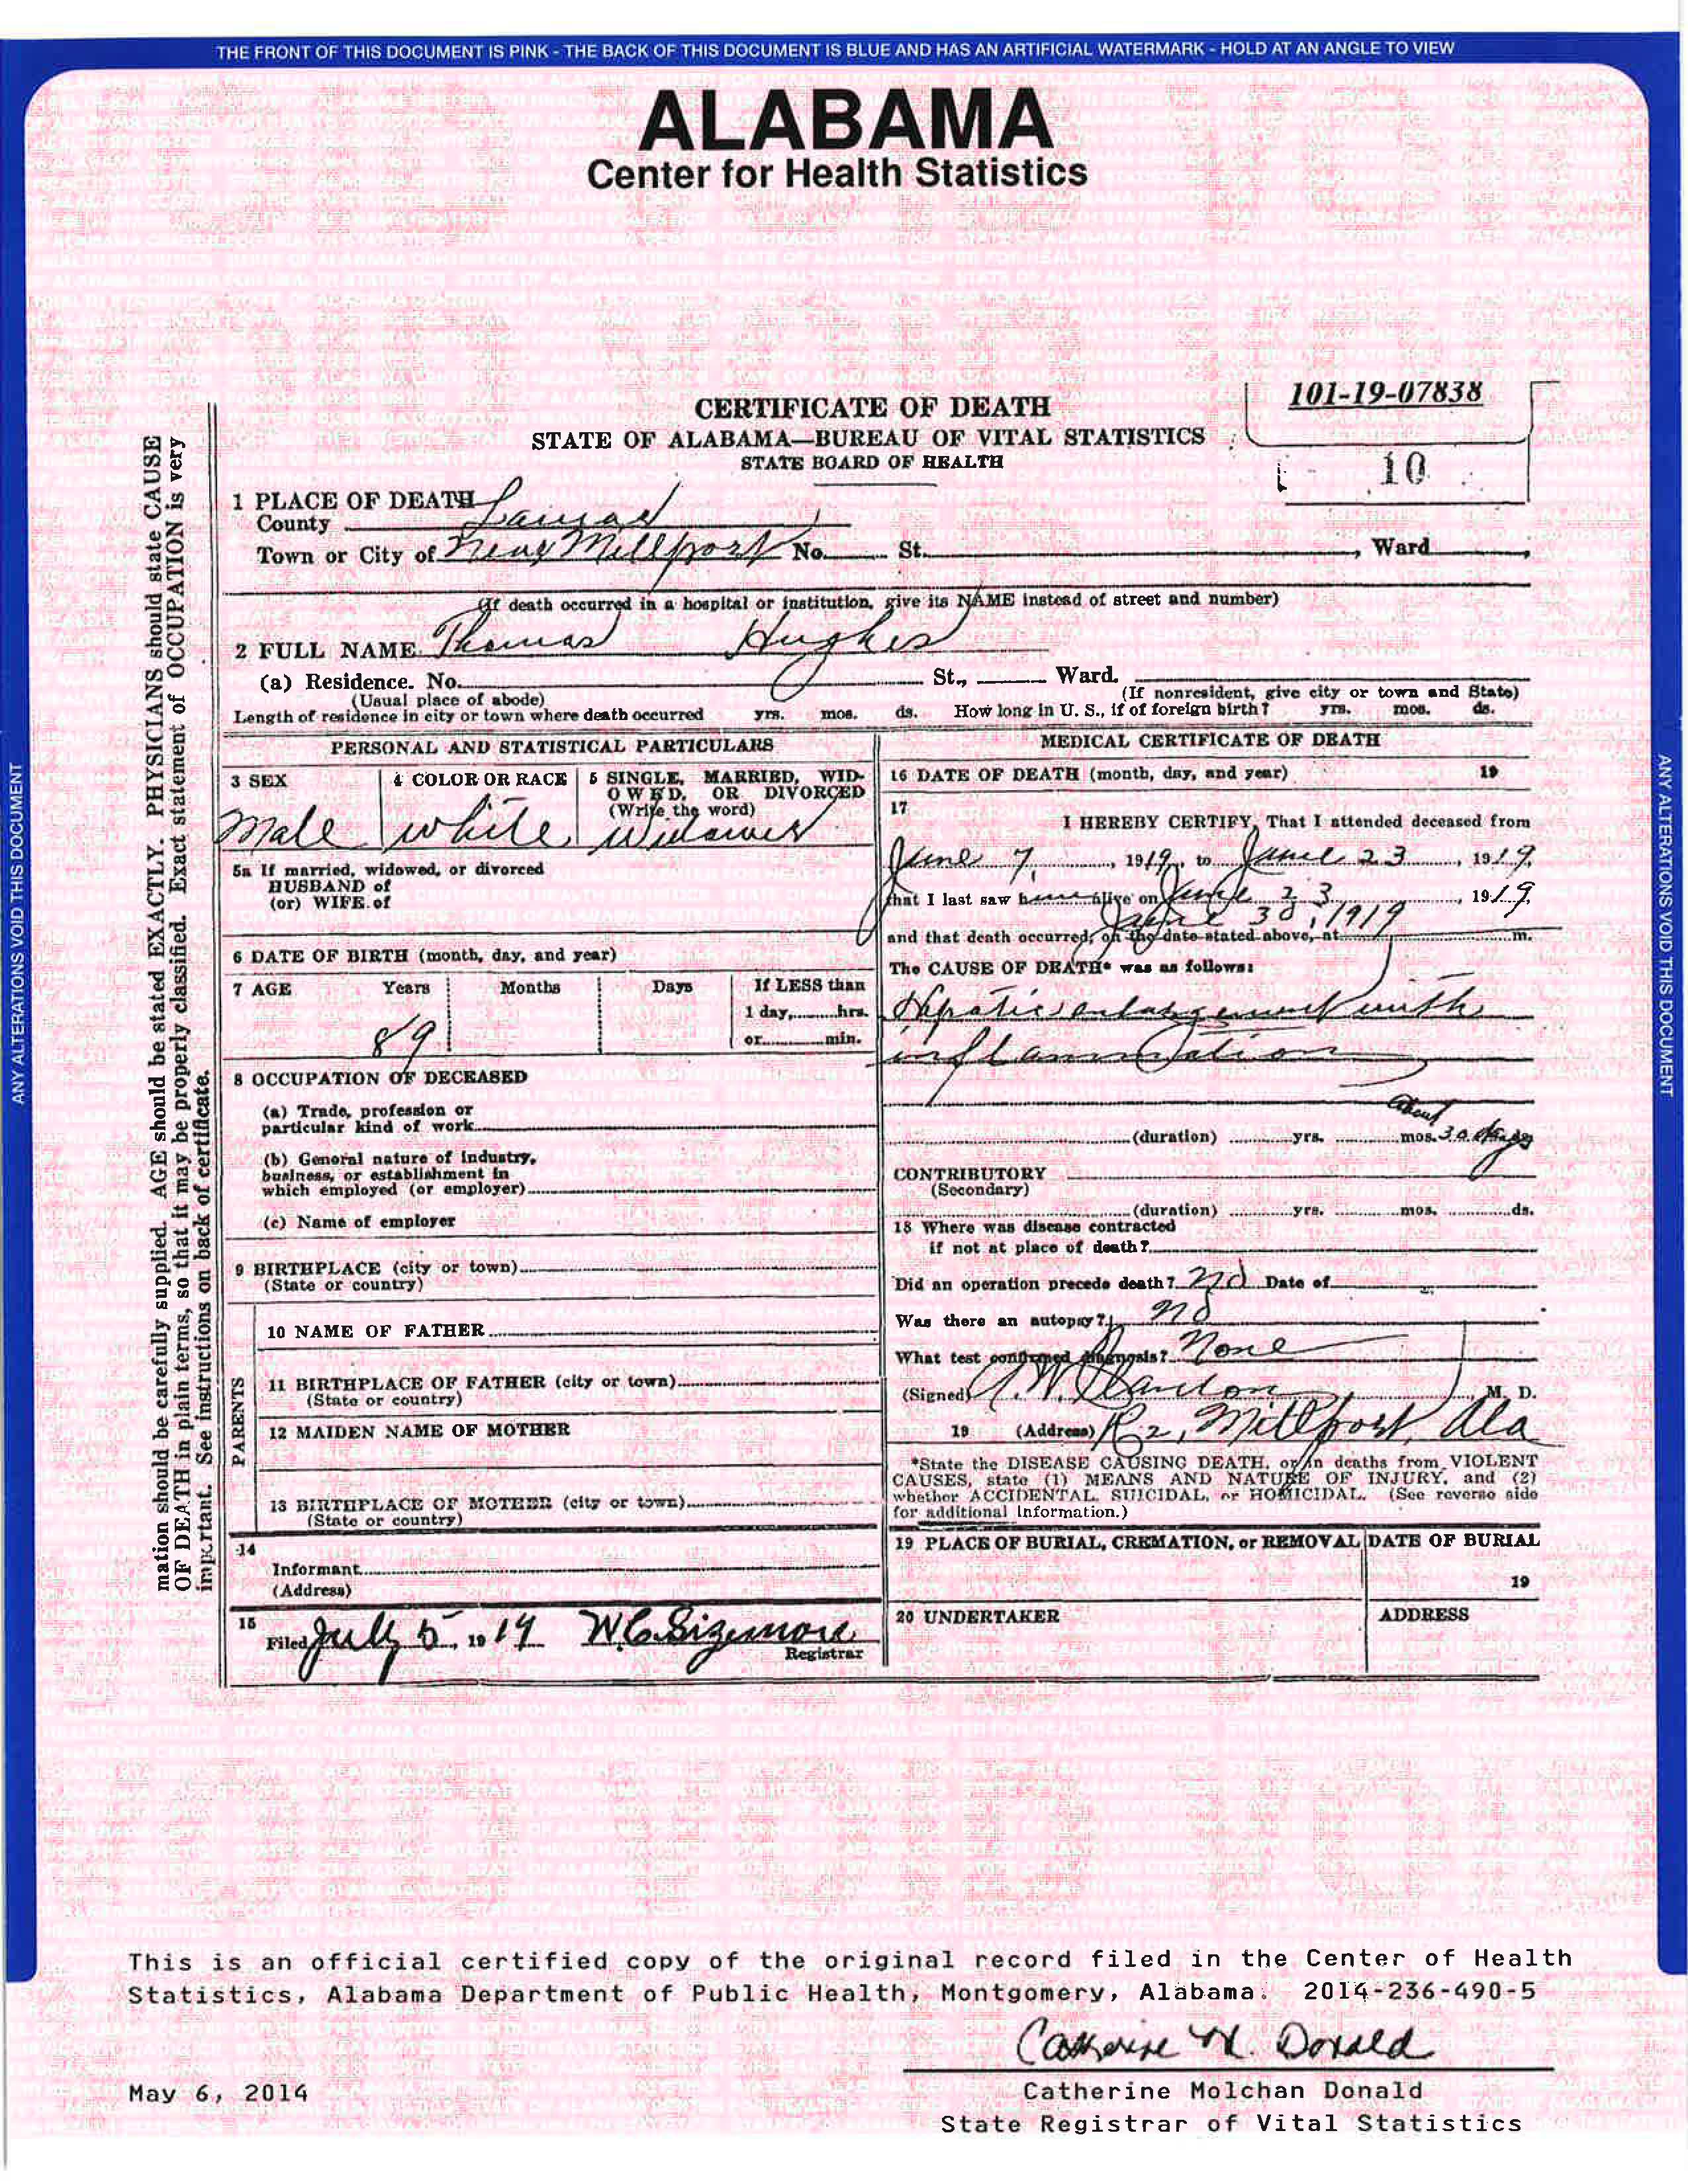 THE FRONT OF THIS DOCUMENT IS PINK - THE BACK OF THIS DOCUMENT IS BLUE AND HAS AN ARTIFICIAL WATERMARK - HOLD AT AN ANGLE TO VIEW
ALABAMA
Center for Health Statistics
101-19-07838
10
CERTIFICATE OF DEATH
STATE OF ALABAMA—BUREAU OF VITAL STATISTICS
STATE BOARD OF HEALTH
1 PLACE OF DEATH
County Lamar
Town or City of near Millport No. St. , Ward
(If death occurred in a hospital or institution, give its NAME instead of street and number)
2 FULL NAME Thomas Hughes
(a) Residence. No. St., Ward.
(Usual place of abode) (If nonresident, give city or town and State)
Length of residence in city or town where death occurred yrs. mos. ds. How long in U. S., if of foreign birth? yrs. mos. ds.
PERSONAL AND STATISTICAL PARTICULARS
3 SEX
Male
4 COLOR OR RACE
white
5 SINGLE, MARRIED, WID-
OWED, OR DIVORCED
(Write the word)
Widower
5a If married, widowed, or divorced
HUSBAND of
(or) WIFE of
6 DATE OF BIRTH (month, day, and year)
7 AGE Years Months Days If LESS than
1 day, hrs.
or min.
89
8 OCCUPATION OF DECEASED
(a) Trade, profession or
particular kind of work
(b) General nature of industry,
business, or establishment in
which employed (or employer)
(c) Name of employer
9 BIRTHPLACE (city or town)
(State or country)
PARENTS
10 NAME OF FATHER
11 BIRTHPLACE OF FATHER (city or town)
(State or country)
12 MAIDEN NAME OF MOTHER
13 BIRTHPLACE OF MOTHER (city or town)
(State or country)
14
Informant
(Address)
15
Filed July 5, 1919 W.C. Sizemore
Registrar
MEDICAL CERTIFICATE OF DEATH
16 DATE OF DEATH (month, day, and year) 19
17
I HEREBY CERTIFY, That I attended deceased from
June 7, 1919, to June 23, 1919,
that I last saw him alive on June 23, 1919,
June 30, 1919
and that death occurred, on the date stated above, at m.
The CAUSE OF DEATH* was as follows:
Hepatic enlargement with
inflammation
about
(duration) yrs. mos. 30 days
CONTRIBUTORY
(Secondary)
(duration) yrs. mos. ds.
18 Where was disease contracted
if not at place of death?
Did an operation precede death? no Date of
Was there an autopsy? no
What test confirmed diagnosis? None
(Signed) M. D.
19 (Address) R 2, Millport, Ala
*State the DISEASE CAUSING DEATH, or in deaths from VIOLENT
CAUSES, state (1) MEANS AND NATURE OF INJURY, and (2)
whether ACCIDENTAL, SUICIDAL, or HOMICIDAL. (See reverse side
for additional information.)
19 PLACE OF BURIAL, CREMATION, or REMOVAL
DATE OF BURIAL
19
20 UNDERTAKER
ADDRESS
mation should be carefully supplied. AGE should be stated EXACTLY. PHYSICIANS should state CAUSE
OF DEATH in plain terms, so that it may be properly classified. Exact statement of OCCUPATION is very
important. See instructions on back of certificate.
ANY ALTERATIONS VOID THIS DOCUMENT
ANY ALTERATIONS VOID THIS DOCUMENT
This is an official certified copy of the original record filed in the Center of Health
Statistics, Alabama Department of Public Health, Montgomery, Alabama. 2014-236-490-5
Catherine M. Donald
May 6, 2014
Catherine Molchan Donald
State Registrar of Vital Statistics